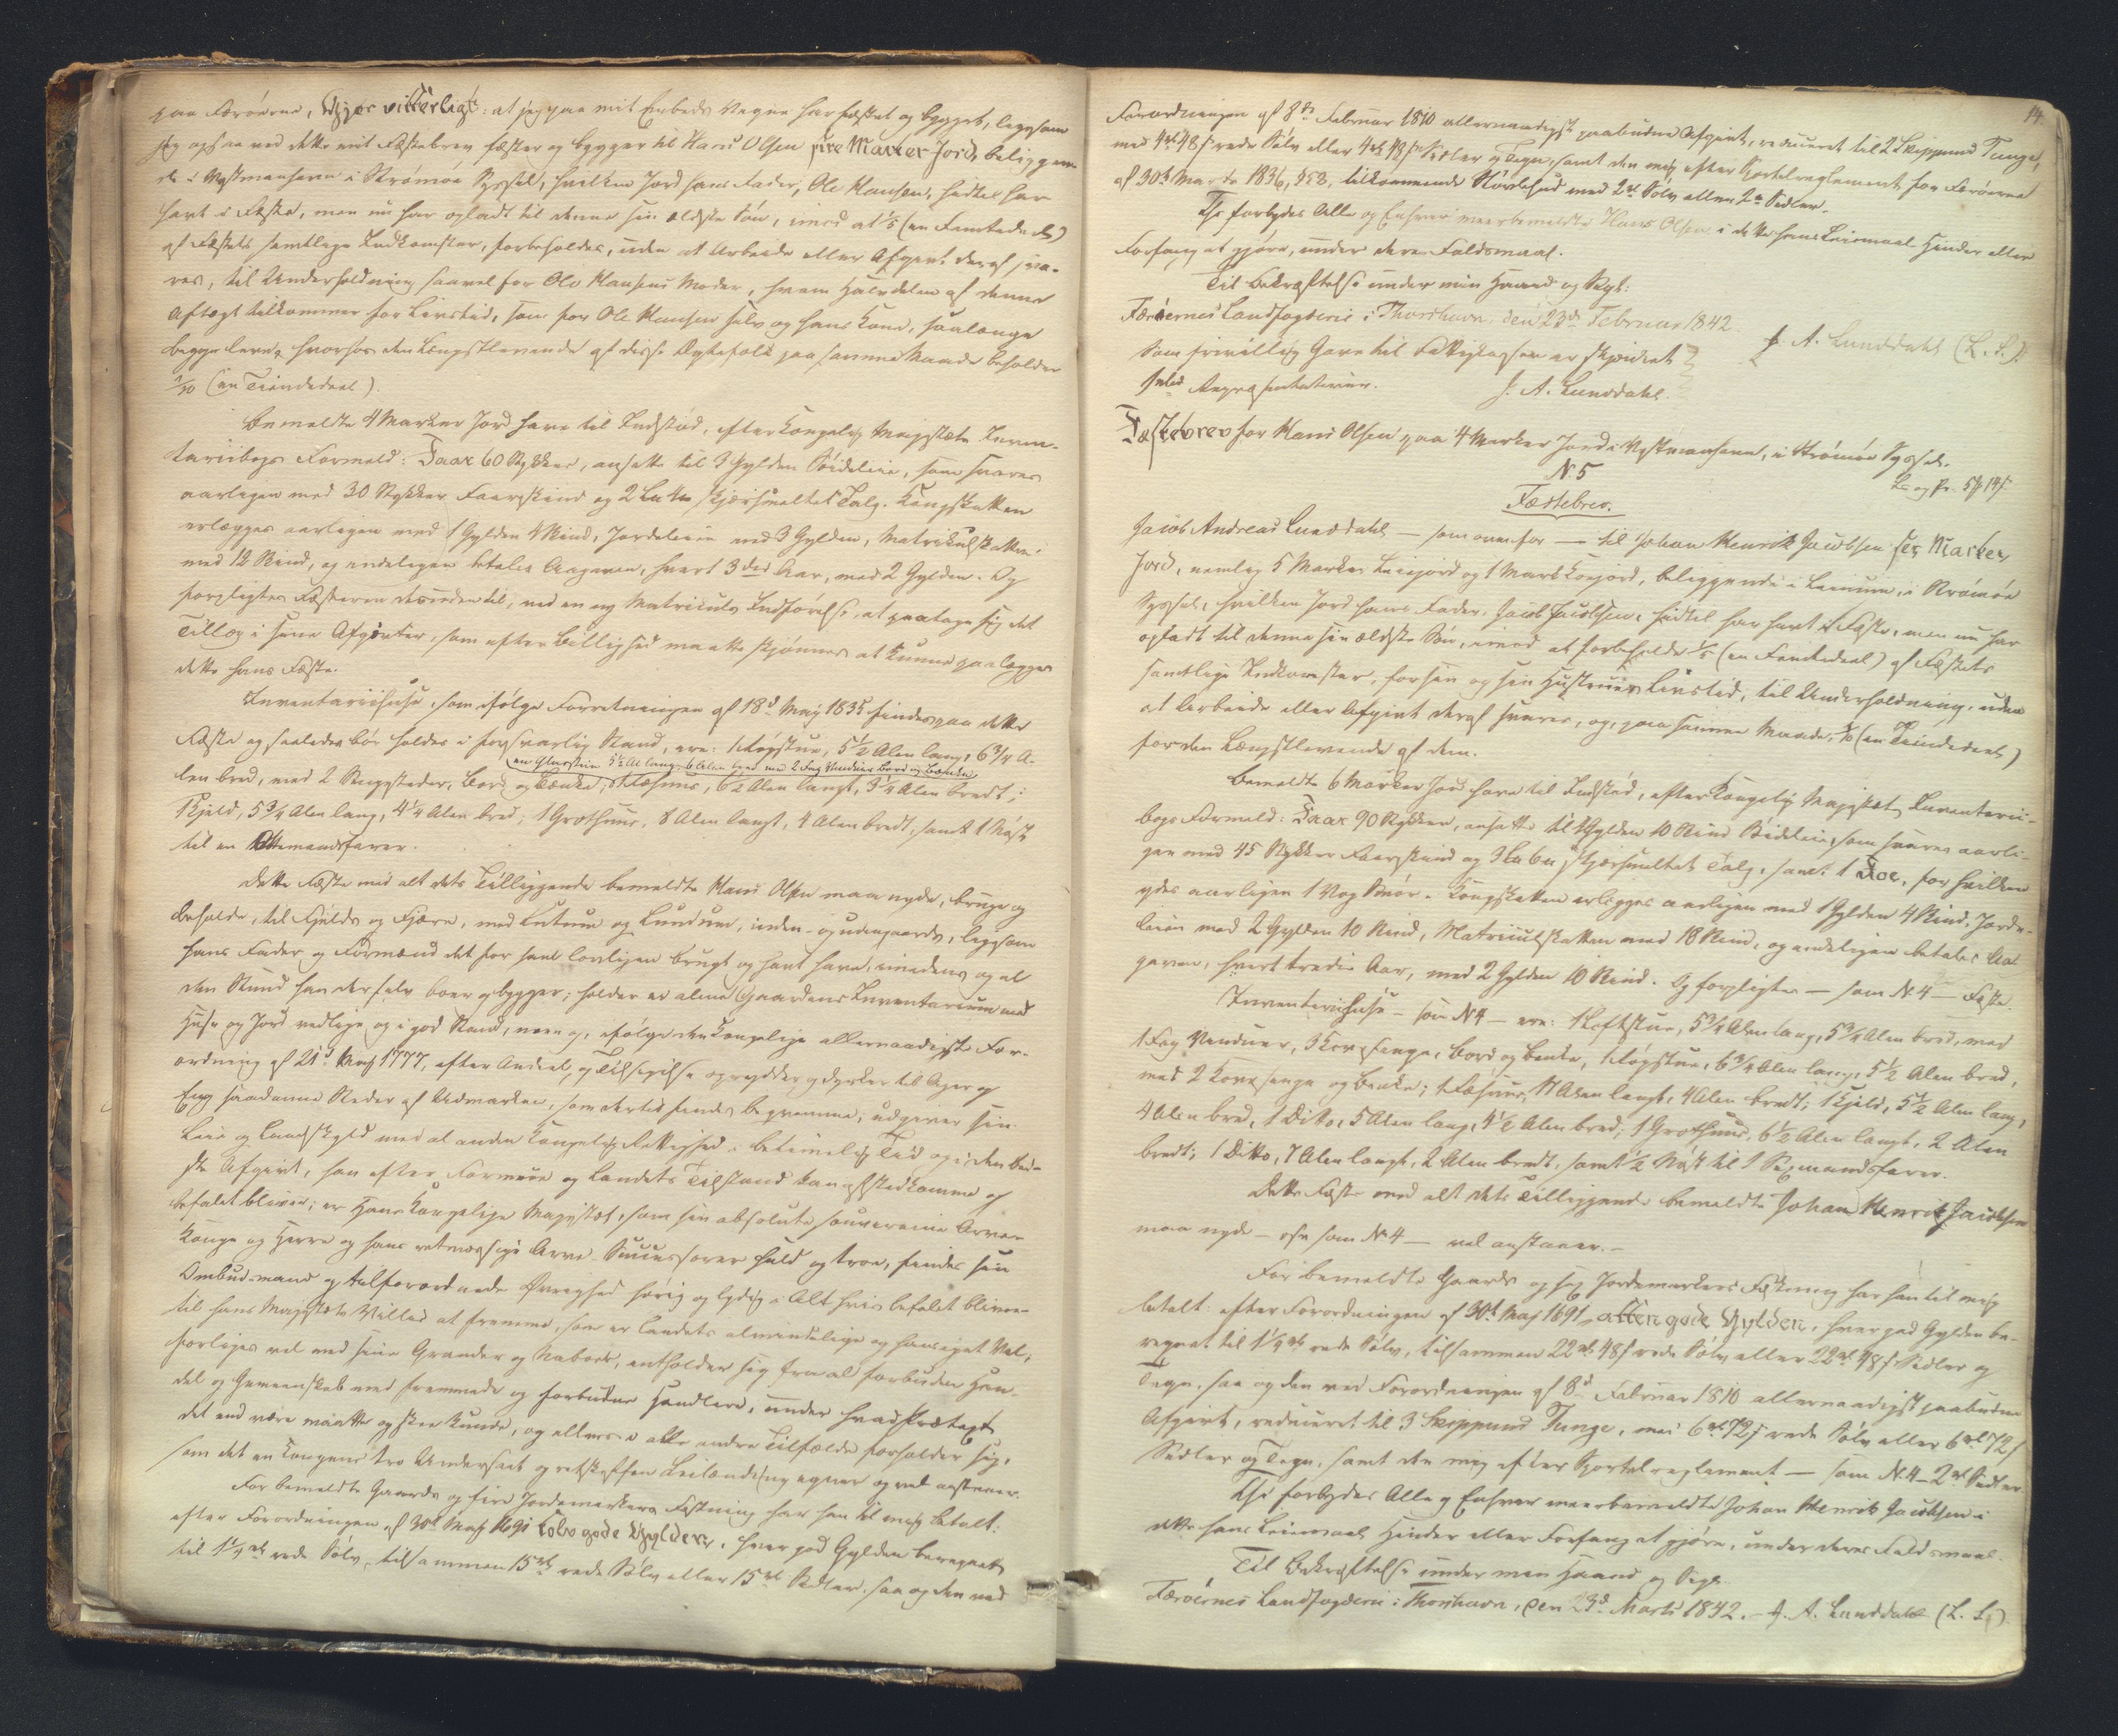 paa Færöerne, Gjör vitterligt: at jeg paa mit Embeds Vegne har fæstet og bygget, ligesom
jeg ogsaa ved dette mit Fæstebrev fæster og bygger til Hans Olsen fire Marker Jord, beliggen-
de i Vestmanhavn i Strömöe Syssel, hvilken Jord hans Fader, Ole Hansen, hidtil har
havt i Fæste, men nu har opladt til denne sin ældste Sön, imod at 1/5 (en Femtedeel)
af Fæstets samtlige Indkomster, forbeholdes, uden at Arbeide eller Afgivt deraf sva-
res, til Underholdning saavel for Ole Hansens Moder, hvem Halvdelen af denne
Aftægt tilkommer for Livstid, som for Ole Hansen selv og hans Kone, saalænge
begge leve, hvorfor den Længstlevende af disse Ægtefolk paa samme Maade beholder
1/10 (en Tiendedeel).
Bemeldte 4 Marker Jord have til Indstöd, efter Kongelig Majestæts Inven-
tariibogs Formeld: Faar 60 Stykker, ansatte til 3 Gylden Söideleie, som svares
aarligen med 30 Stykker Faareskind og 2 Lod skjærsmeltet Talg. Kongskatten
erlægges aarligen med 1 Gylden 4 Skind, Jordeleien med 3 Gylden, Matrikulskatten
med 12 Skind, og endeligen betales Aagaven, hvert 3die Aar, med 2 Gylden. Og
forpligtes Fæsteren desuden til, ved en ny Matriculs Indförelse, at paatage sig det
Tillæg i sine Afgivter, som efter Billighed maatte skjönnes at kunne paalægges
dette hans Fæste.
Inventariihuse, som ifölge Forretningen af 18d May 1835 findes paa dette
Fæste og saaledes bör holdes i forsvarlig Stand, ere: 1 Rögstue, 5 1/2 Alen lang, 6 3/4 A-
en Glasstue 5 1/2 Al. lang, 6 Alen bred med 2 Fag Vinduer Bord og Bænke,
len bred, med 2 Sengesteder, Bord og Bænke; 1 Fæhuus, 6 1/2 Alen langt, 3 1/4 Alen bredt;
1 Hjeld, 5 3/4 Alen lang, 4 1/4 Alen bred; 1 Grothuus, 8 Alen langt, 4 Alen bredt, samt 1 Nöst
til en Ottemandsfarer.
Dette Fæste med alt dets Tilliggende bemeldte Hans Olsen maa nyde, bruge og
beholde, til Fjelds og Fjære, med Lutum og Lundum, inden- og udengaards, ligesom
hans Fader og Formænd det for ham lovligen brugt og havt have, imedens og al
den Stund han der selv boer og bygger; holder ved alene Gaardens Inventarium med
Huse og Jord vedlige og i god Stand, men og, ifölge den kongelige allernaadigste For-
ordning af 21d May 1777, efter Andeel, og Tilsigelse oprydder og dyrker til Ager og
Eng saadanne Steder af Udmarken, som dertil findes beqvemme; udgiver sin
Leie og Landskyld med al anden Kongelig Rettighed i betimelig Tid og i den bed-
ste Afgivt, som efter Formue og Landets Tilstand kan afstedkomme og
befalet bliver; er Hans Kongelige Majestæt, som sin absolute souveraine Arve-
Konge og Herre og hans retmæssige Arve-Successorer huld og troe, findes sin
Ombudsmand og tilforordnede Övrighed hörig og lydig i Alt hvis befalet bliver
til hans Majestæts Villie at fremme, som er Landets almindelige og hans eget Vel;
forliges vel med sine Grander og Naboer, entholder sig fra al forbuden Han-
del og Gemeenskab med fremmede og forbudne Handlere, under hvad Prætext
det end være maatte og skee kunde, og ellers i alle andre Tilfælde forholder sig,
som det en Kongens tro Undersaat og retskaffen Leilænding egner og vel anstaaer.
For bemeldte Gaards og fire Jordemarkers Fæstning har han til mig betalt:
efter Forordningen af 30d May 1691 tolv gode Gylden, hver god Gylden beregnet
til 1 1/4 rd rede Sölv, tilsammen 15 rd rede Sölv eller 15 rd Sedler, saa og den ved
14.
Forordningen af 8de Februar 1810 allernaadigst paabudne Afgivt, reduceret til 2 Skippund Tunge,
med 4 rd 48 s rede Sölv eller 4 rd 48 s Sedler og Tegn, samt den mig efter Sportelreglement for Færöerne
af 30te Marts 1836, §58, tilkommende Skrivelön med 2 rd Sölv eller 2 rd Sedler.
Thi forbydes Alle og Enhver meerbemeldte Hans Olsen i dette hans Leiemaal Hinder eller
Forfang at gjöre, under deres Faldsmaal.
Til Bekræftelse under min Haand og Segl:
Færöernes Landfogderie i Thorshavn, den 23de Februar 1842.
J. A. Lunddahl (L. S.)
Som frivillig Gave til Fattigkassen er skjenket
J. A. Lunddahl.
Fæstebrev for Hans Olsen paa 4 Marker Jord i Vestmanhavn, i Strömöe Syssel.
N. 5
Fæstebrev.
Jacob Andreas Lunddahl — som ovenfor — til Johan Henrik Jacobsen sex Marker
Jord, nemlig 5 Marker Leiejord og 1 Mark Konjord, beliggende i Leinum, i Strömöe
Syssel, hvilken Jord hans Fader, Jacob Jacobsen, hidtil har havt i Fæste, men nu har
opladt til denne sin ældste Sön, imod at forbeholde 1/5 (en Femtedeel) af Fæstets
samtlige Indkomster, for sin og sin Hustrues Livstid, til Underholdning, uden
at Arbeide eller Afgivt deraf svares, og, paa samme Maade, 1/10 (en Tiendedeel)
for den Længstlevende af dem.
Bemeldte 6 Marker Jord have til Indstöd, efter Kongelig Majestæt Inventarii-
bogs Formeld: Faar 90 Stykker, ansatte til 4 Gylden 10 Skind Söideleie, som svares aarli-
gen med 45 Stykker Faareskind og 3 Lod skjærsmeltet Talg, samt 1 Koe, for hvilken
ydes aarligen 1 Vog Smör. Kongskatten erlægges aarligen med 1 Gylden 4 Skind, Jorde-
leien med 2 Gylden 10 Skind, Matriculskatten med 18 Skind, og endeligen betales Aa-
gaven, hvert tredie Aar, med 2 Gylden 10 Skind. Og forpligtes — som N. 4 — Fæste.
Inventariihuse — som N 4 — ere: 1 Loftstue, 5 3/4 Alen lang, 5 3/4 Alen bred, med
1 Fag Vinduer, 3 Kovesenge, Bord og Bænke, 1 Rögstue, 6 3/4 Alen lang, 5 1/2 Alen bred,
med 2 Kovesenge og Bænke; 1 Fæhuus, 11 Alen langt, 4 Alen bredt; 1 Hjeld, 5 1/2 Alen lang,
4 Alen bred, 1 Dito, 5 Alen lang, 4 1/2 Alen bred; 1 Grothuus, 6 1/2 Alen langt, 2 Alen
bredt; 1 Ditto, 7 Alen langt, 2 Alen bredt, samt 1/2 Nöst til 1 Sexmandsfarer.
Dette Fæste med alt dets Tilliggende bemeldte Johan Henrik Jacobsen
maa nyde — osv. som N. 4 — vel anstaaer. —
For bemeldte Gaards og sex Jordemarkers Fæstning har han til mig
betalt: efter Forordningen af 30te May 1691 atten gode Gylden, hver god Gylden be-
regnet til 1 1/4 rd rede Sölv, tilsammen 22 rd 48 s rede Sölv eller 22 rd 48 s Sedler og
Tegn, saa og den ved Forordningen af 8d Februar 1810 allernaadigst paabudne
Afgivt, reduceret til 3 Skippund Tunge, med 6 rd 72 s rede Sölv eller 6 rd 72 s
Sedler og Tegn, samt den mig efter Sportelreglement — som N. 4 — 2 rd Sedler.
Thi forbydes Alle og Enhver meerbemeldte Johan Henrik Jacobsen i
dette hans Leiemaal Hinder eller Forfang at gjöre, under deres Faldsmaal.
Til Bekræftelse under min Haand og Segl.
Færöernes Landfogderie i Thorshavn, den 23d Marts 1842. J. A. Lunddahl (L. S.)